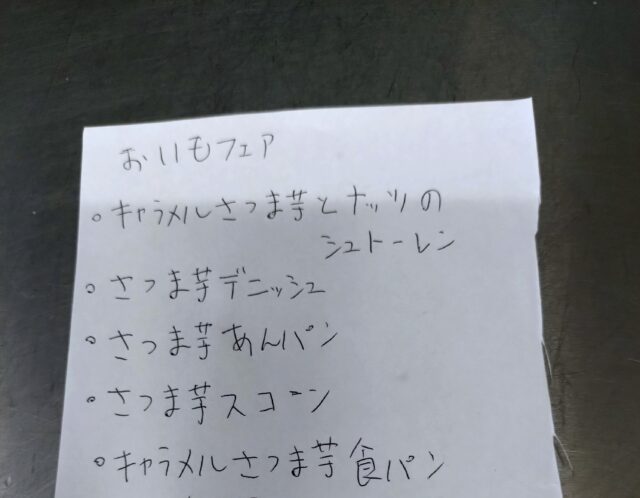 おいもフェア
。キャラメルさつま芋とナッツの
シュトーレン
。さつま芋デニッシュ
。さつま芋あんパン
。さつま芋スコーン
。キャラメルさつま芋食パン